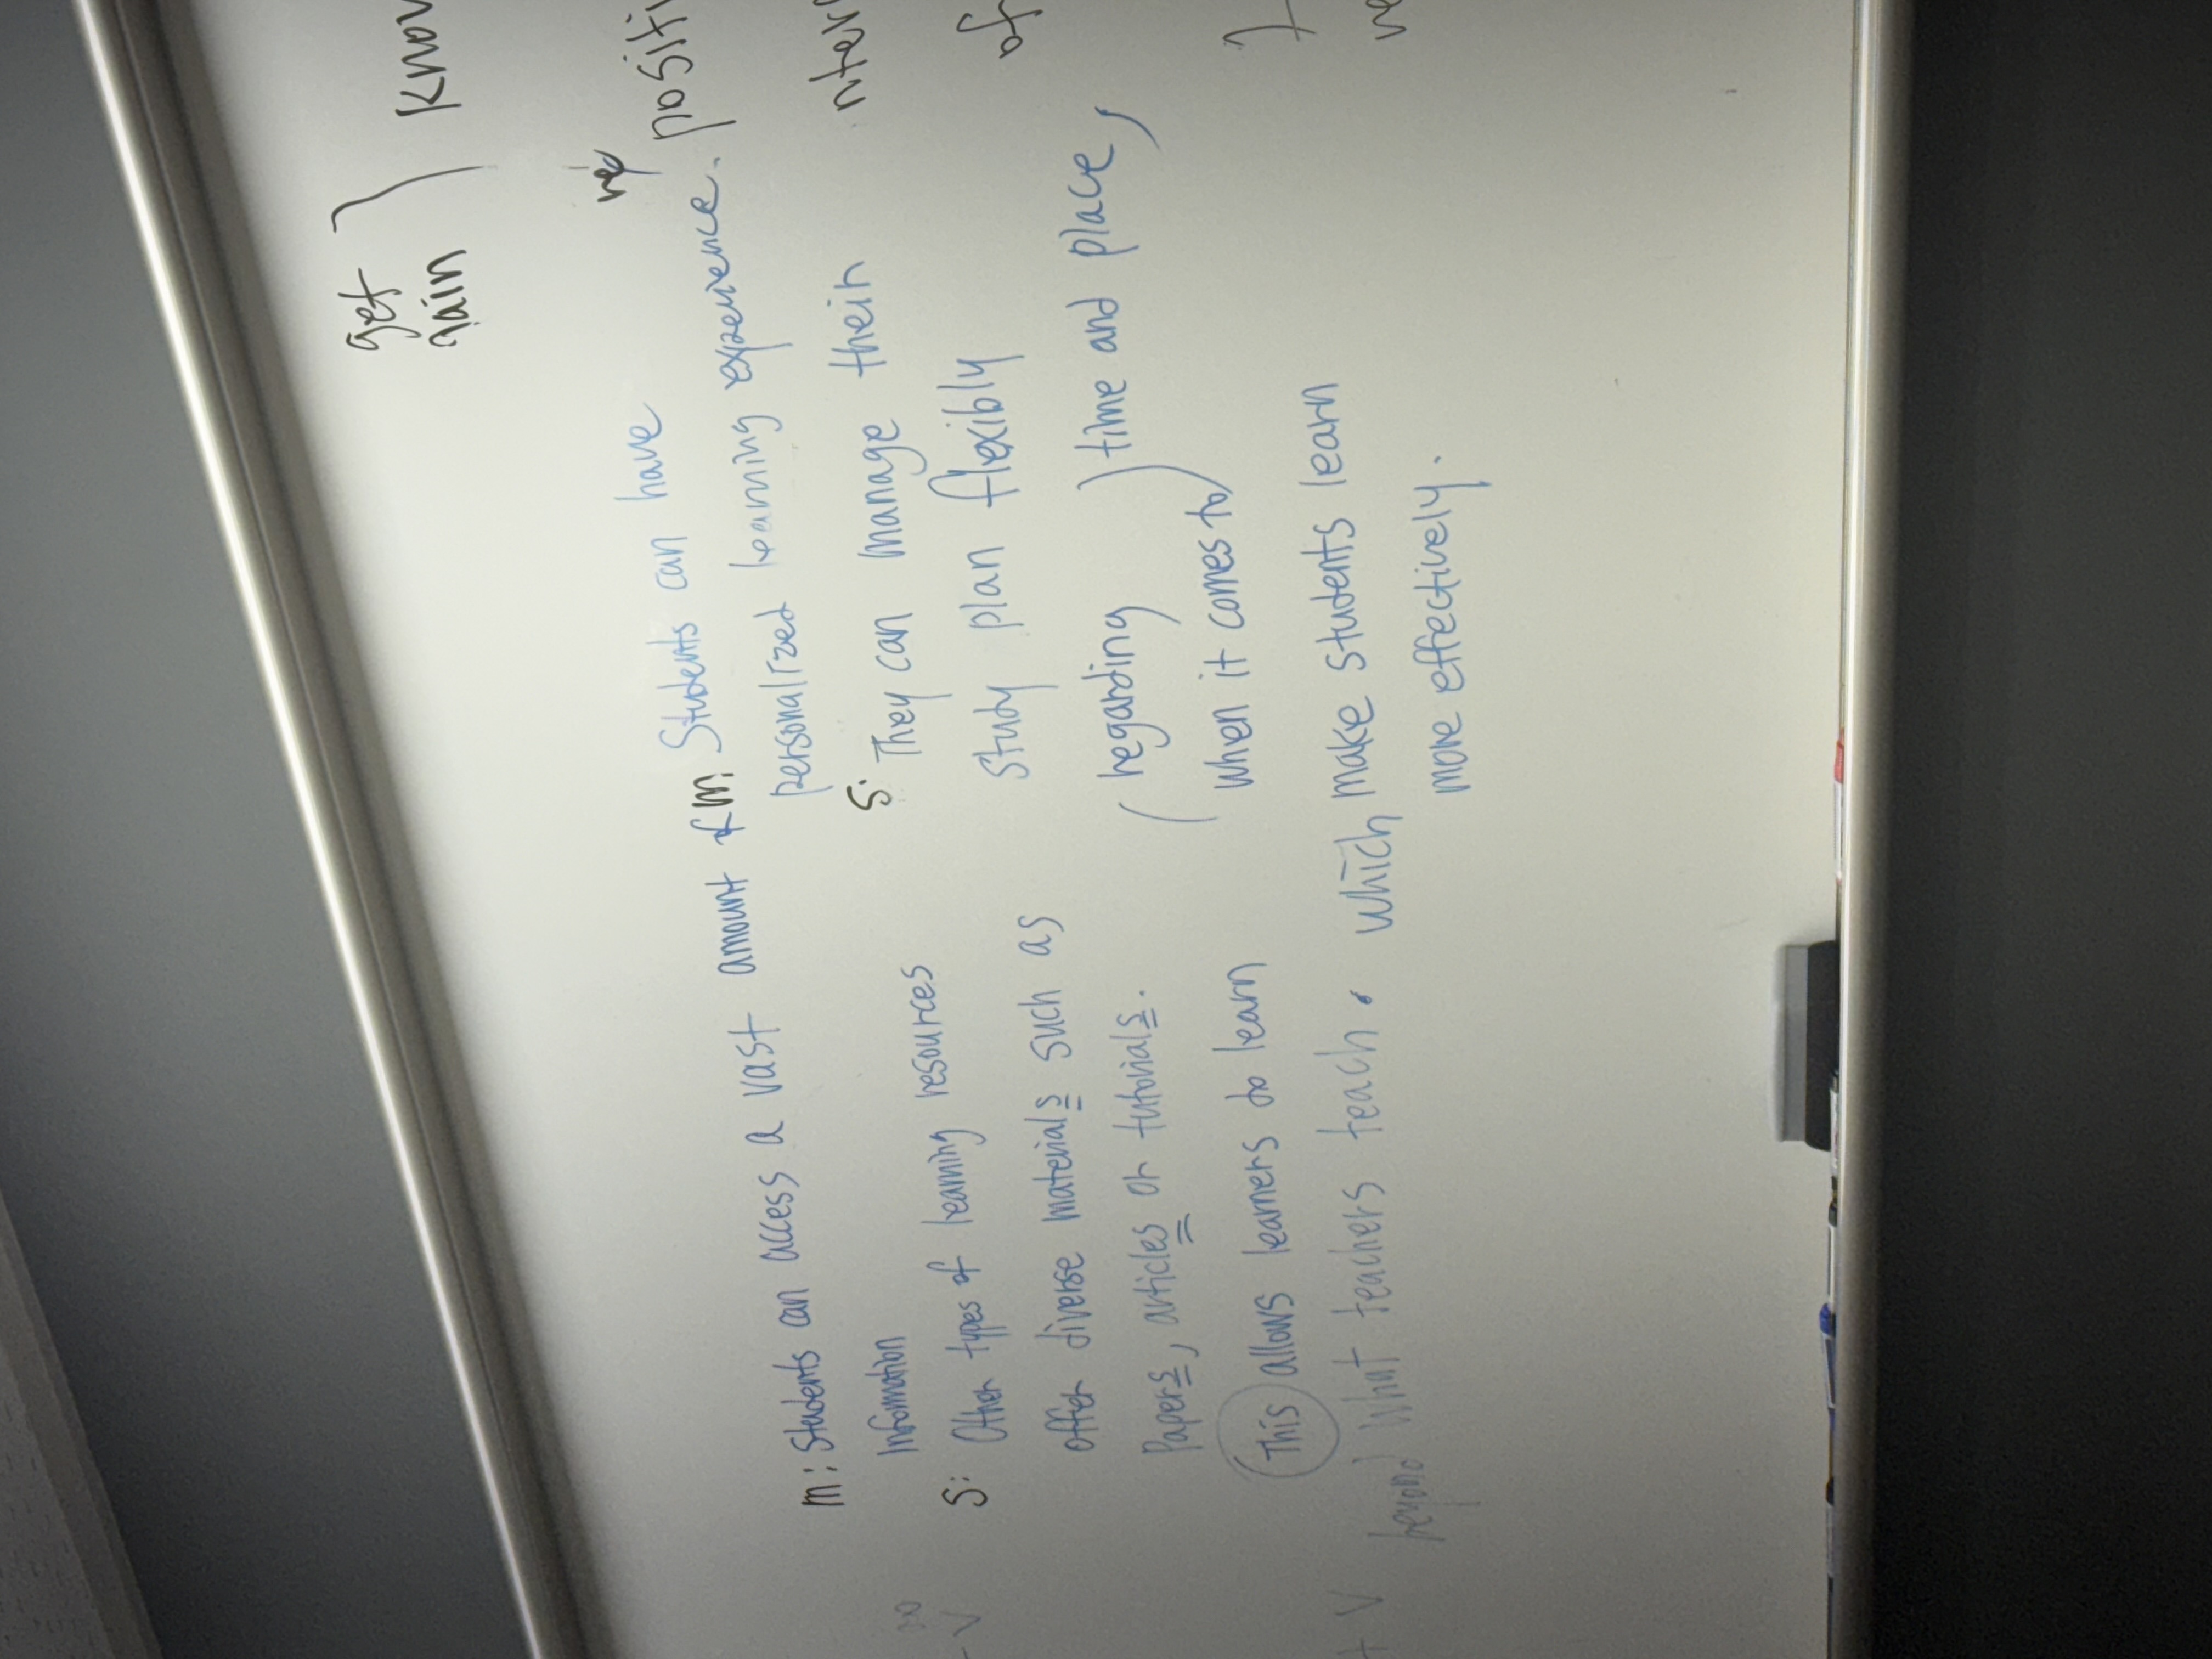 get
gain
m: Students can access a vast amount of
Information
S: Other types of learning resources
offer diverse materials such as
Papers, articles or tutorials.
This allows learners to learn
beyond what teachers teach.
m: Students can have
personalized learning experience.
S: They can manage their
study plan flexibly
(regarding) time and place,
(when it comes to)
which make students learn
more effectively.
positi
of